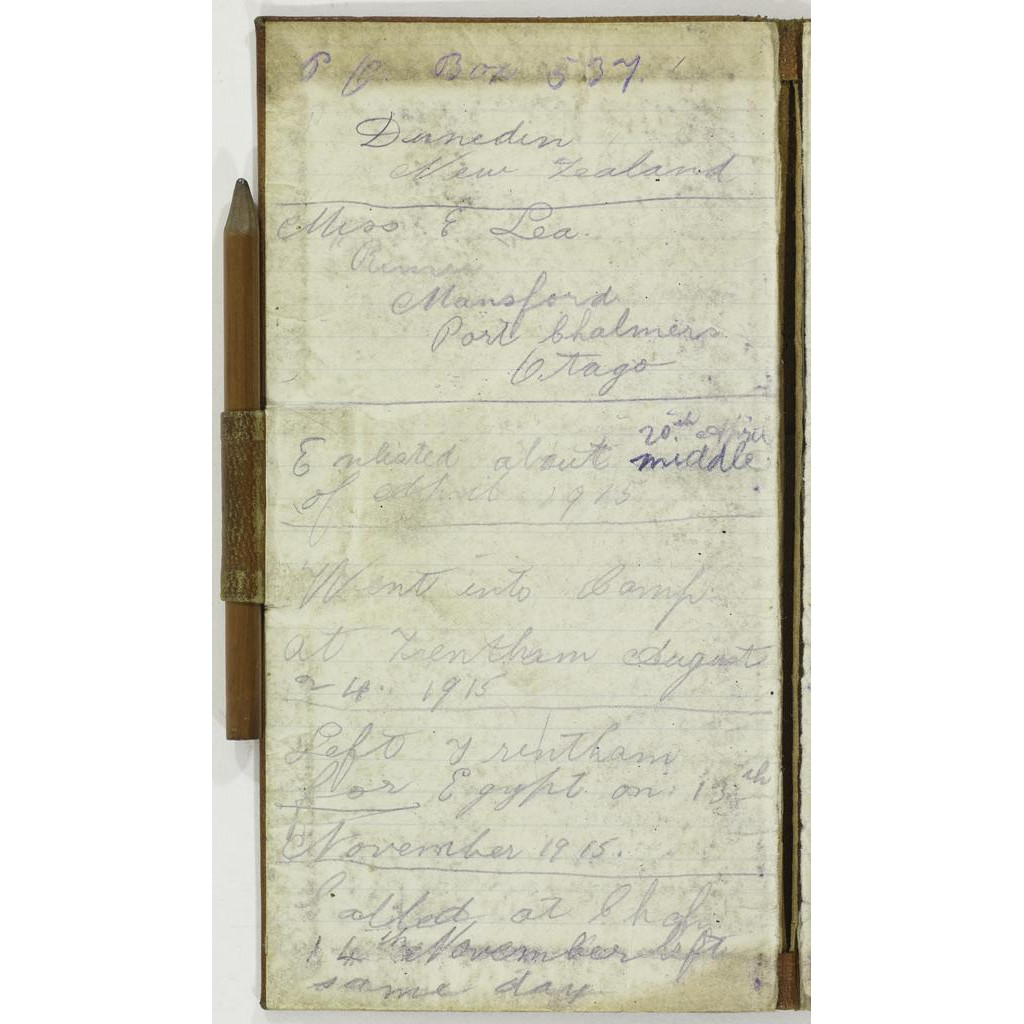 P O. Box 537.
Dunedin
New Zealand
Miss E Lea.
Mansford
Port Chalmers
Otago
20th April
Enlisted about middle
of April 1915
Went into Camp
at Trentham August
24. 1915
Left Trentham
for Egypt on 13th
November 1915.
Called at
14th November left
same day